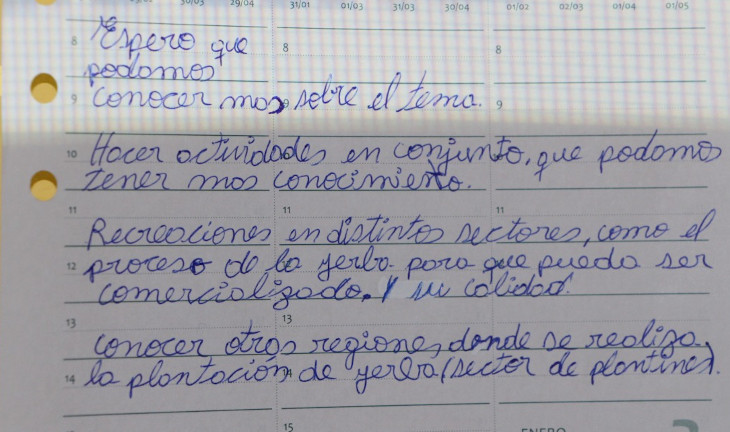 30/03 29/04 31/01 01/03 31/03 30/04 01/02 02/03 01/04 01/05
8 Espero que 8 8
podamos
9 conocer mas sobre el tema. 9
10 Hacer actividades en conjunto, que podamos
tener mas conocimiento.
11 11 11
Recreaciones en distintos sectores, como el
12 proceso de la yerba para que pueda ser
comercializado. y su calidad.
13 13
conocer otras regiones donde se realiza
14 la plantación de yerba (sector de plantines).
15
ENERO